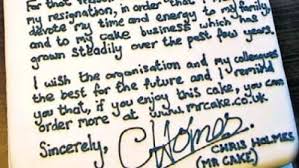 For that reason
my resignation, in order that I may
devote my time and energy to my family
and to my cake business which has
grown steadily over the past few years.
I wish the organisation and my colleagues
the best for the future and I remind
you that, if you enjoy this cake, you can
order more at www.mrcake.co.uk
Sincerely,
CHolmes.
CHRIS HOLMES
(MR CAKE)